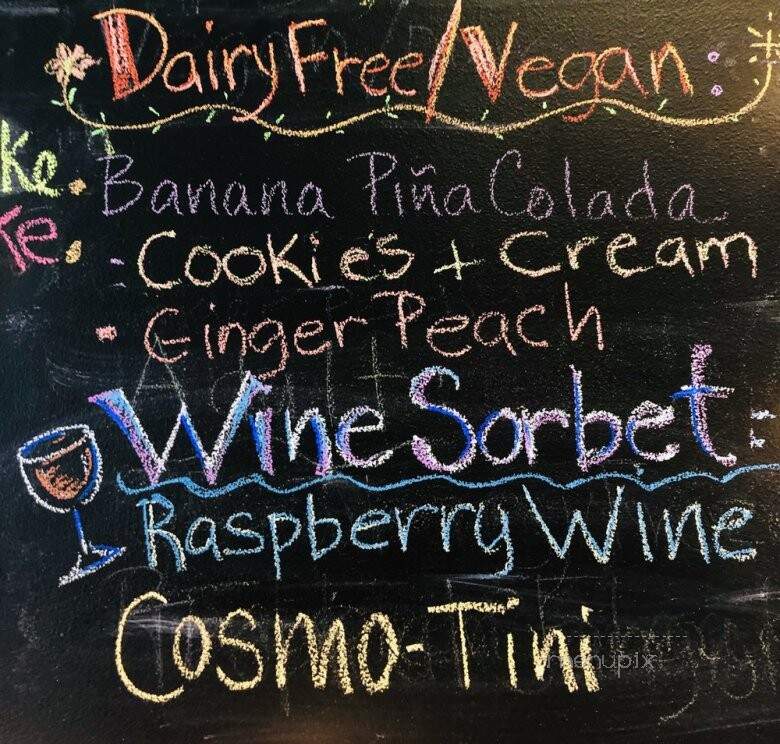 Dairy Free/Vegan:
Ke • Banana Piña Colada
Te • - Cookies + Cream
• Ginger Peach
Wine Sorbet:
Raspberry Wine
Cosmo-Tini
menupix